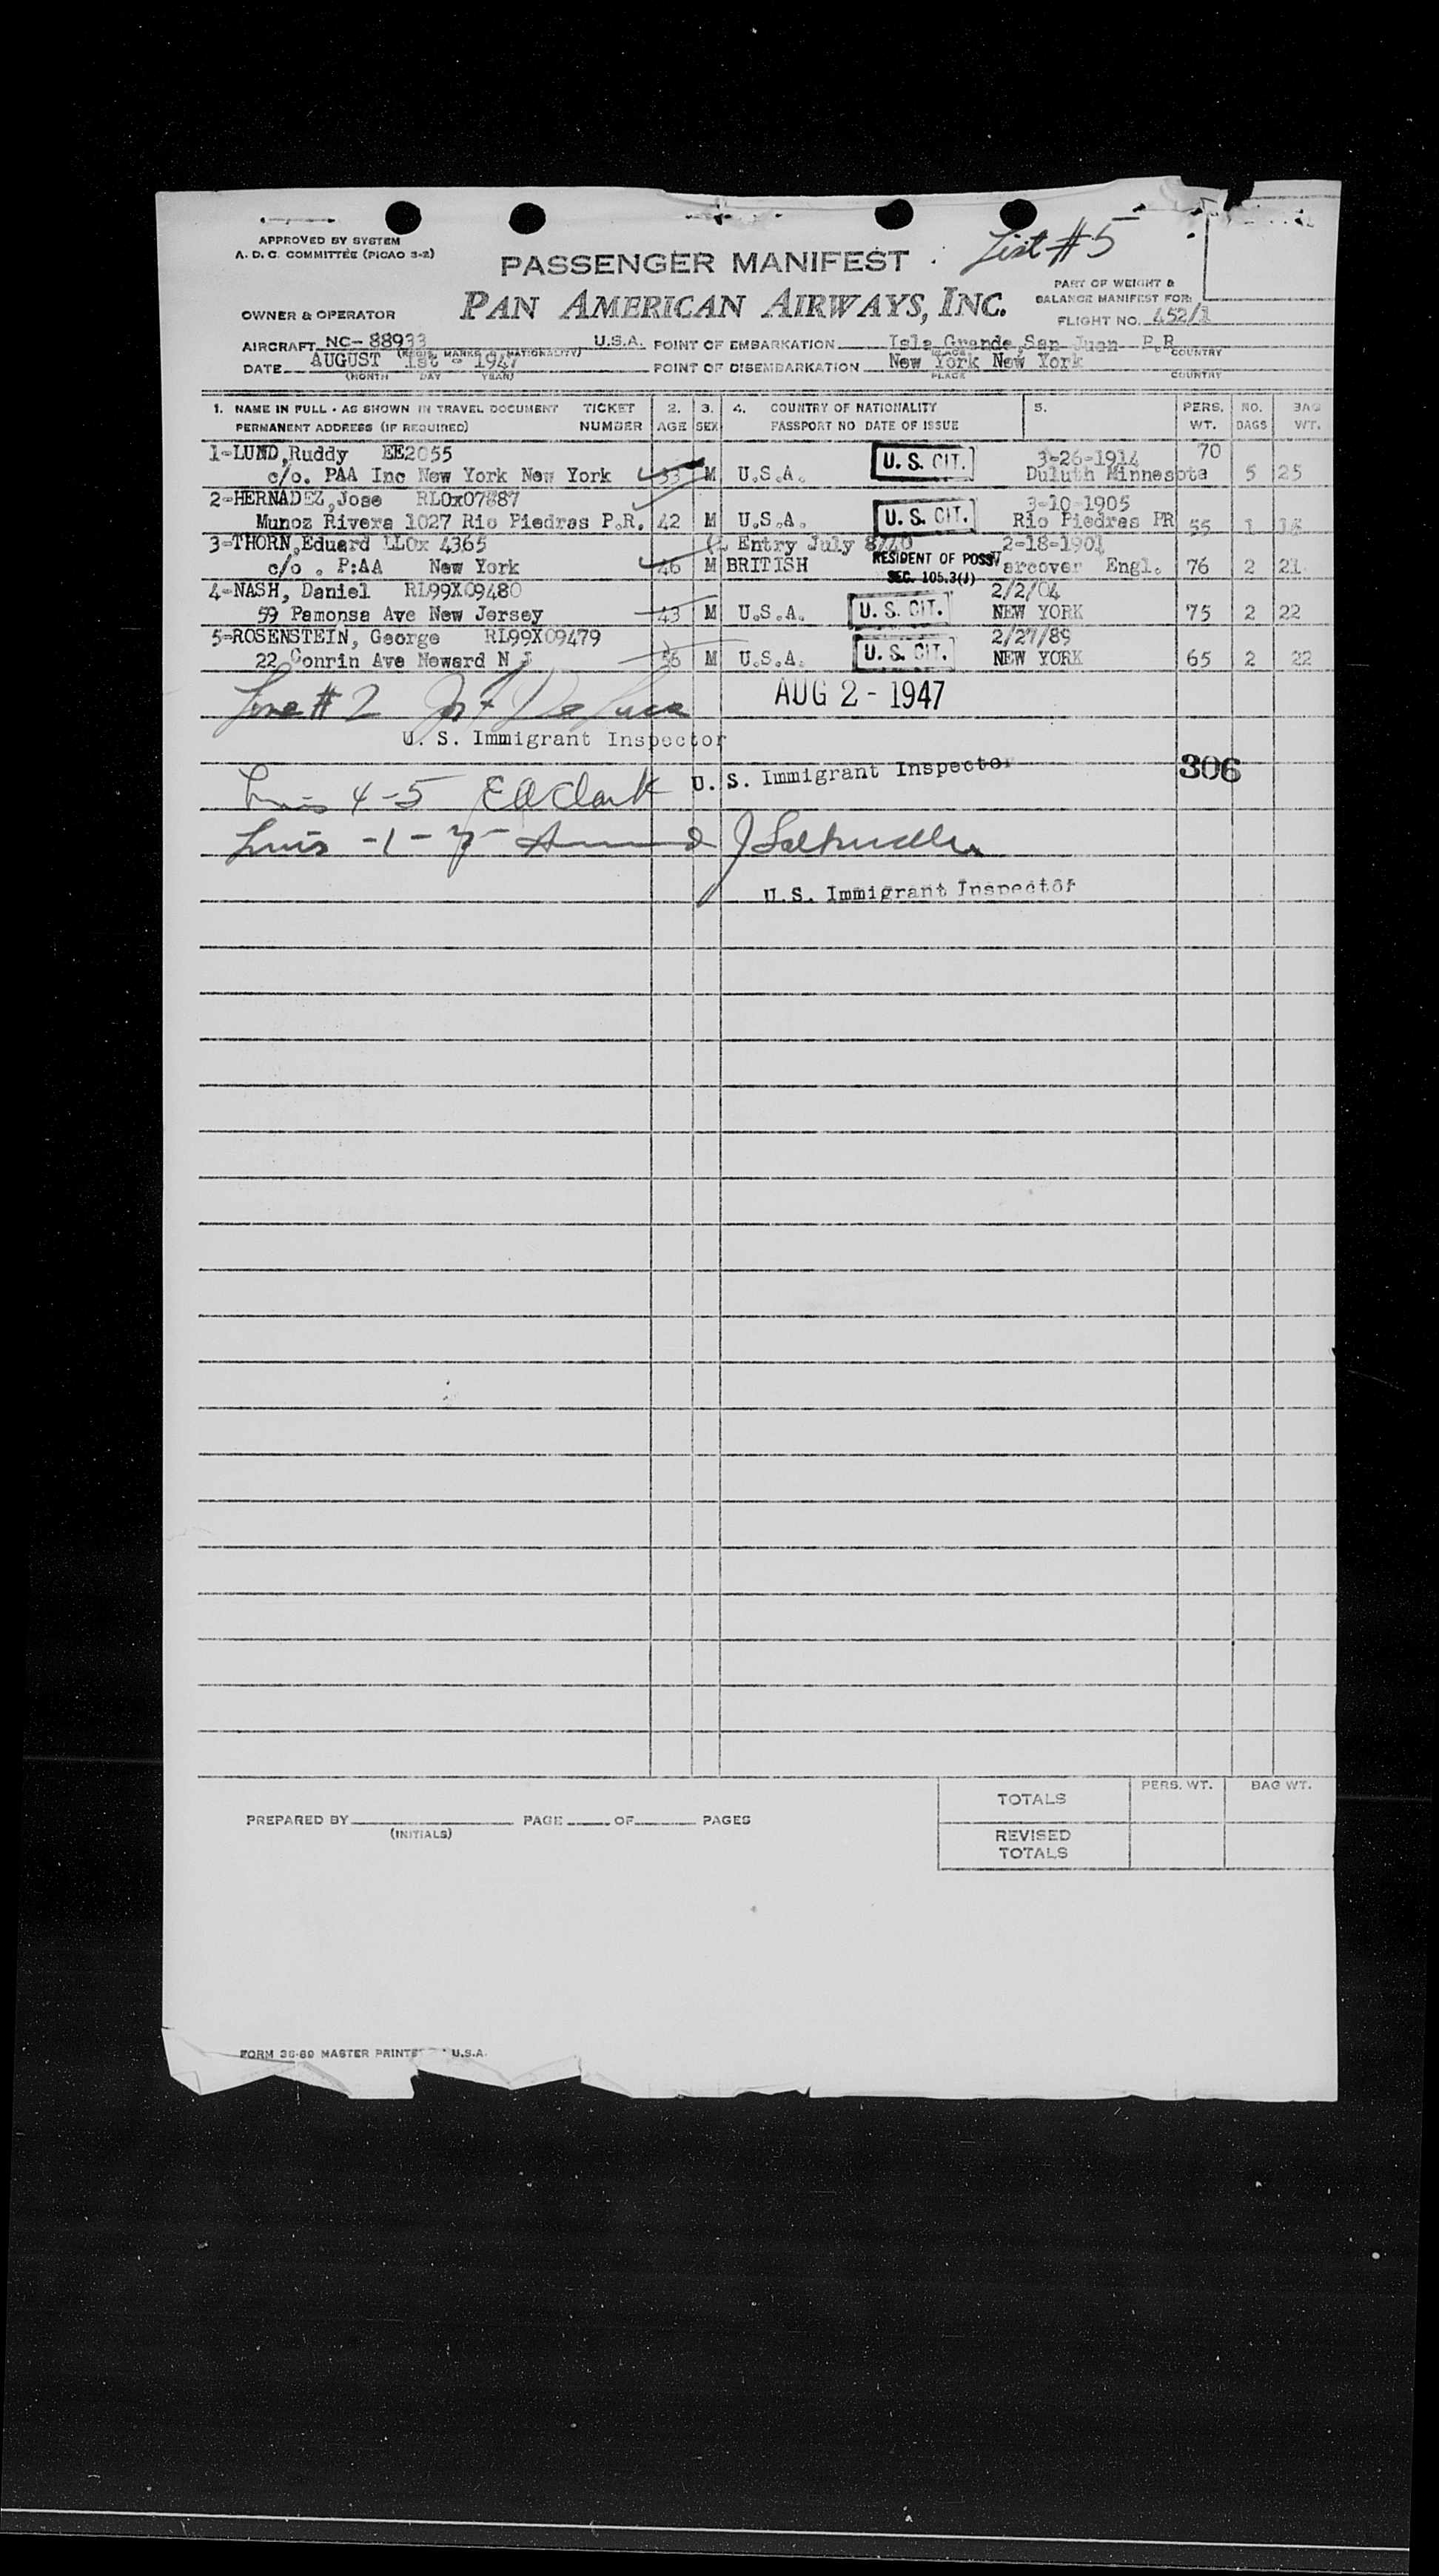 List #5
APPROVED BY SYSTEM
A. D. C. COMMITTEE (PICAO 3-2)
PASSENGER MANIFEST
PAN AMERICAN AIRWAYS, INC.
PART OF WEIGHT &
BALANCE MANIFEST FOR:
OWNER & OPERATOR
FLIGHT NO. 452/1
AIRCRAFT NC-88933 U.S.A. POINT OF EMBARKATION Isla Grande, San Juan P.R
(REGIS. MARKS & NATIONALITY) (PLACE) COUNTRY
DATE AUGUST 1st 1947 POINT OF DISEMBARKATION New York New York
(MONTH DAY YEAR) PLACE COUNTRY
1. NAME IN FULL - AS SHOWN IN TRAVEL DOCUMENT TICKET 2. 3. 4. COUNTRY OF NATIONALITY 5. PERS. NO. BAG
PERMANENT ADDRESS (IF REQUIRED) NUMBER AGE SEX PASSPORT NO DATE OF ISSUE WT. BAGS WT.
1-LUND,Ruddy EE2055 U. S. CIT. 3-26-1914 70
c/o. PAA Inc New York New York 33 M U.S.A. Duluth Minnesota 5 25
2-HERNADEZ,Jose RLOx07887 3-10-1905
Munoz Rivera 1027 Rio Piedras P.R. 42 M U.S.A. U. S. CIT. Rio Piedras PR 55 1
3-THORN,Eduard LLOx 4365 Entry July 2-18-1901
c/o . P:AA New York 46 M BRITISH RESIDENT OF POSS. Engl. 76 2 21
SEC. 105.3(J)
4-NASH, Daniel RL99X09480 2/2/04
59 Pamonsa Ave New Jersey 43 M U.S.A. U. S. CIT. NEW YORK 75 2 22
5-ROSENSTEIN, George RL99X09479 2/27/89
22 Conrin Ave Neward N J 56 M U.S.A. U. S. CIT. NEW YORK 65 2 22
Line #2
AUG 2 - 1947
U. S. Immigrant Inspector
4-5 E A Clark U. S. Immigrant Inspector 306
U.S. Immigrant Inspector
TOTALS PERS. WT. BAG WT.
PREPARED BY PAGE OF PAGES
(INITIALS)
REVISED
TOTALS
FORM 36-89 MASTER PRINTE U.S.A.